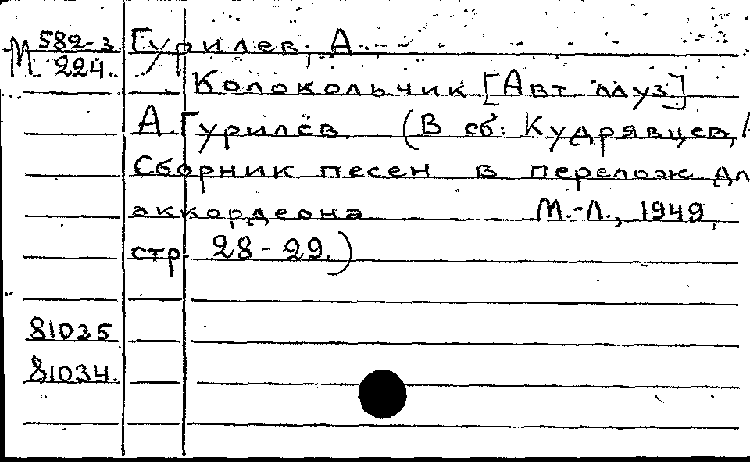 М 582-3 Гурилев, А.
224.
Колокольчик [Авт. муз.]
А. Гурилёв (В сб: Кудрявцев,
Сборник песен в перелож. дл
аккордеона М.-Л., 1949,
стр. 28-29.)
81035
81034.